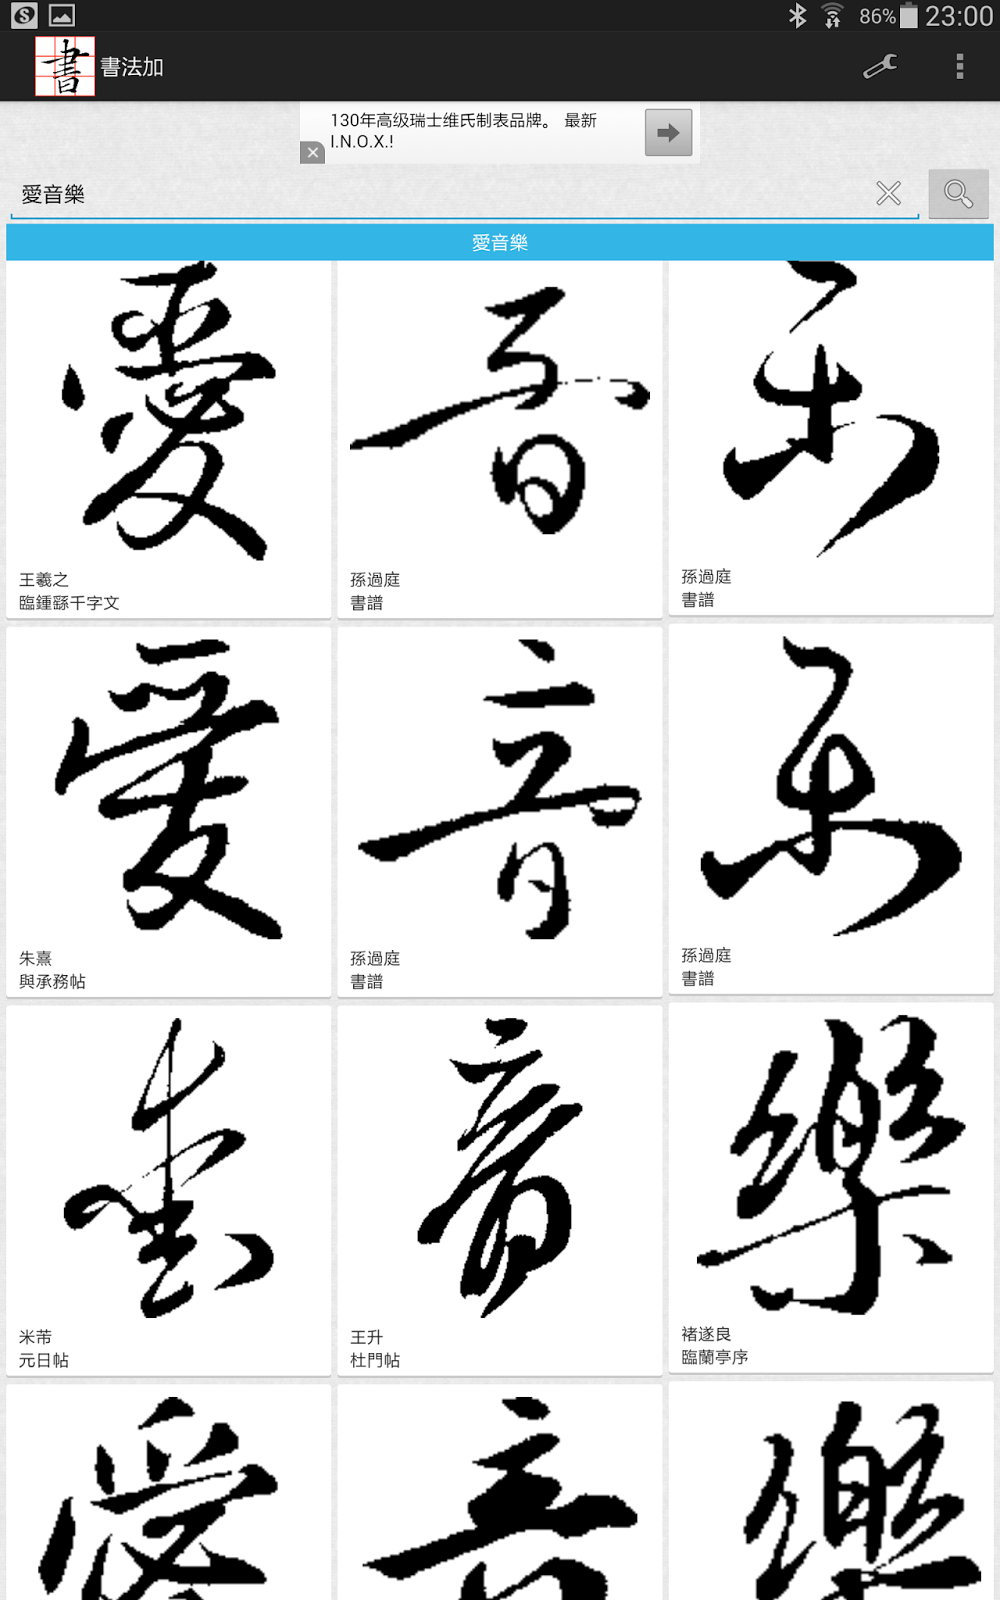 86% 23:00
書 書法加
130年高级瑞士维氏制表品牌。 最新
I.N.O.X.!
愛音樂
愛音樂
愛 音 樂
王羲之
臨鍾繇千字文
孫過庭
書譜
孫過庭
書譜
愛 音 樂
朱熹
與承務帖
孫過庭
書譜
孫過庭
書譜
愛 音 樂
米芾
元日帖
王升
杜門帖
褚遂良
臨蘭亭序
愛 音 樂